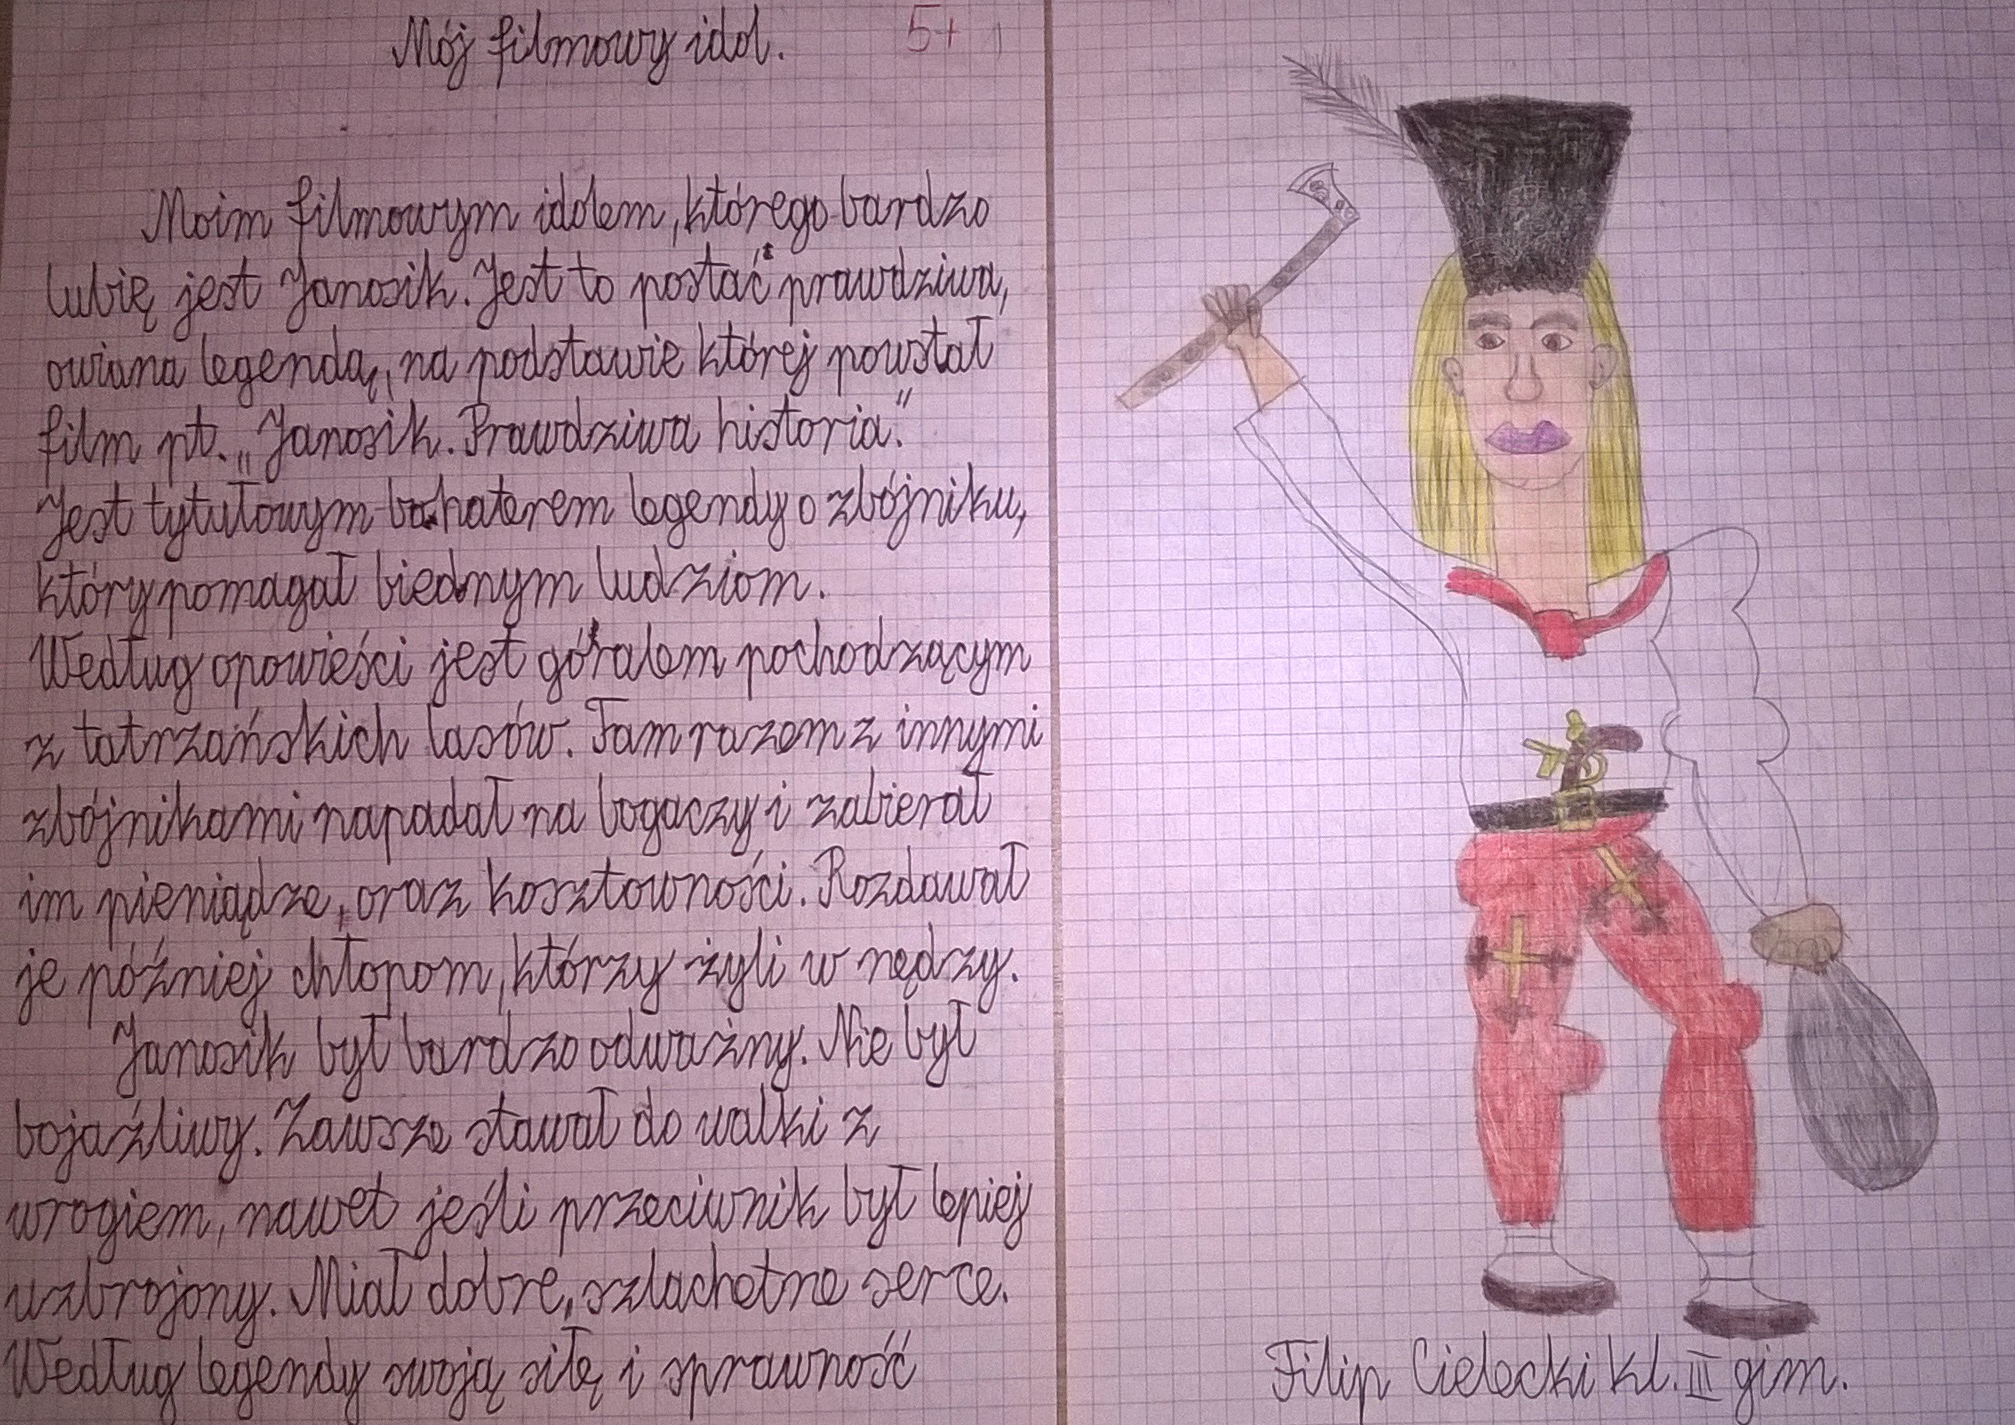 Mój filmowy idol.
5+
Moim filmowym idolem, którego bardzo
lubię jest Janosik. Jest to postać prawdziwa,
owiana legendą, na podstawie której powstał
film pt. „Janosik. Prawdziwa historia."
Jest tytułowym bohaterem legendy o zbójniku,
który pomagał biednym ludziom.
Według opowieści jest góralem pochodzącym
z tatrzańskich lasów. Tam razem z innymi
zbójnikami napadał na bogaczy i zabierał
im pieniądze, oraz kosztowności. Rozdawał
je później chłopom, którzy żyli w nędzy.
Janosik był bardzo odważny. Nie był
bojaźliwy. Zawsze stawał do walki z
wrogiem, nawet jeśli przeciwnik był lepiej
uzbrojony. Miał dobre, szlachetne serce.
Według legendy swoją siłę i sprawność
Filip Cielecki kl. III gim.